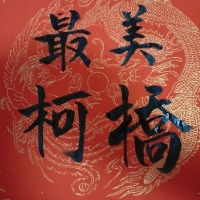 最美
柯橋